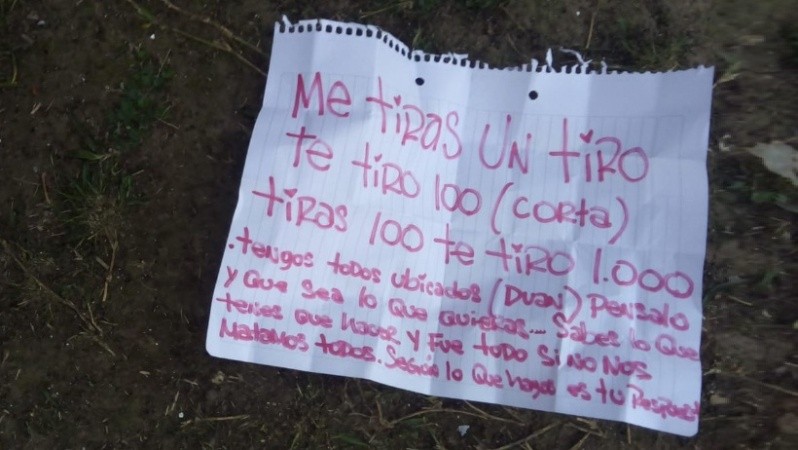 Me tiras un tiro
te tiro 100 (corta)
tiras 100 te tiro 1.000
.tengos todos ubicados (Duan) Pensalo
y que sea lo que quieras... Sabes lo que
tenes que hacer y fue todo si no nos
matamos todos. Según lo que hagas es tu